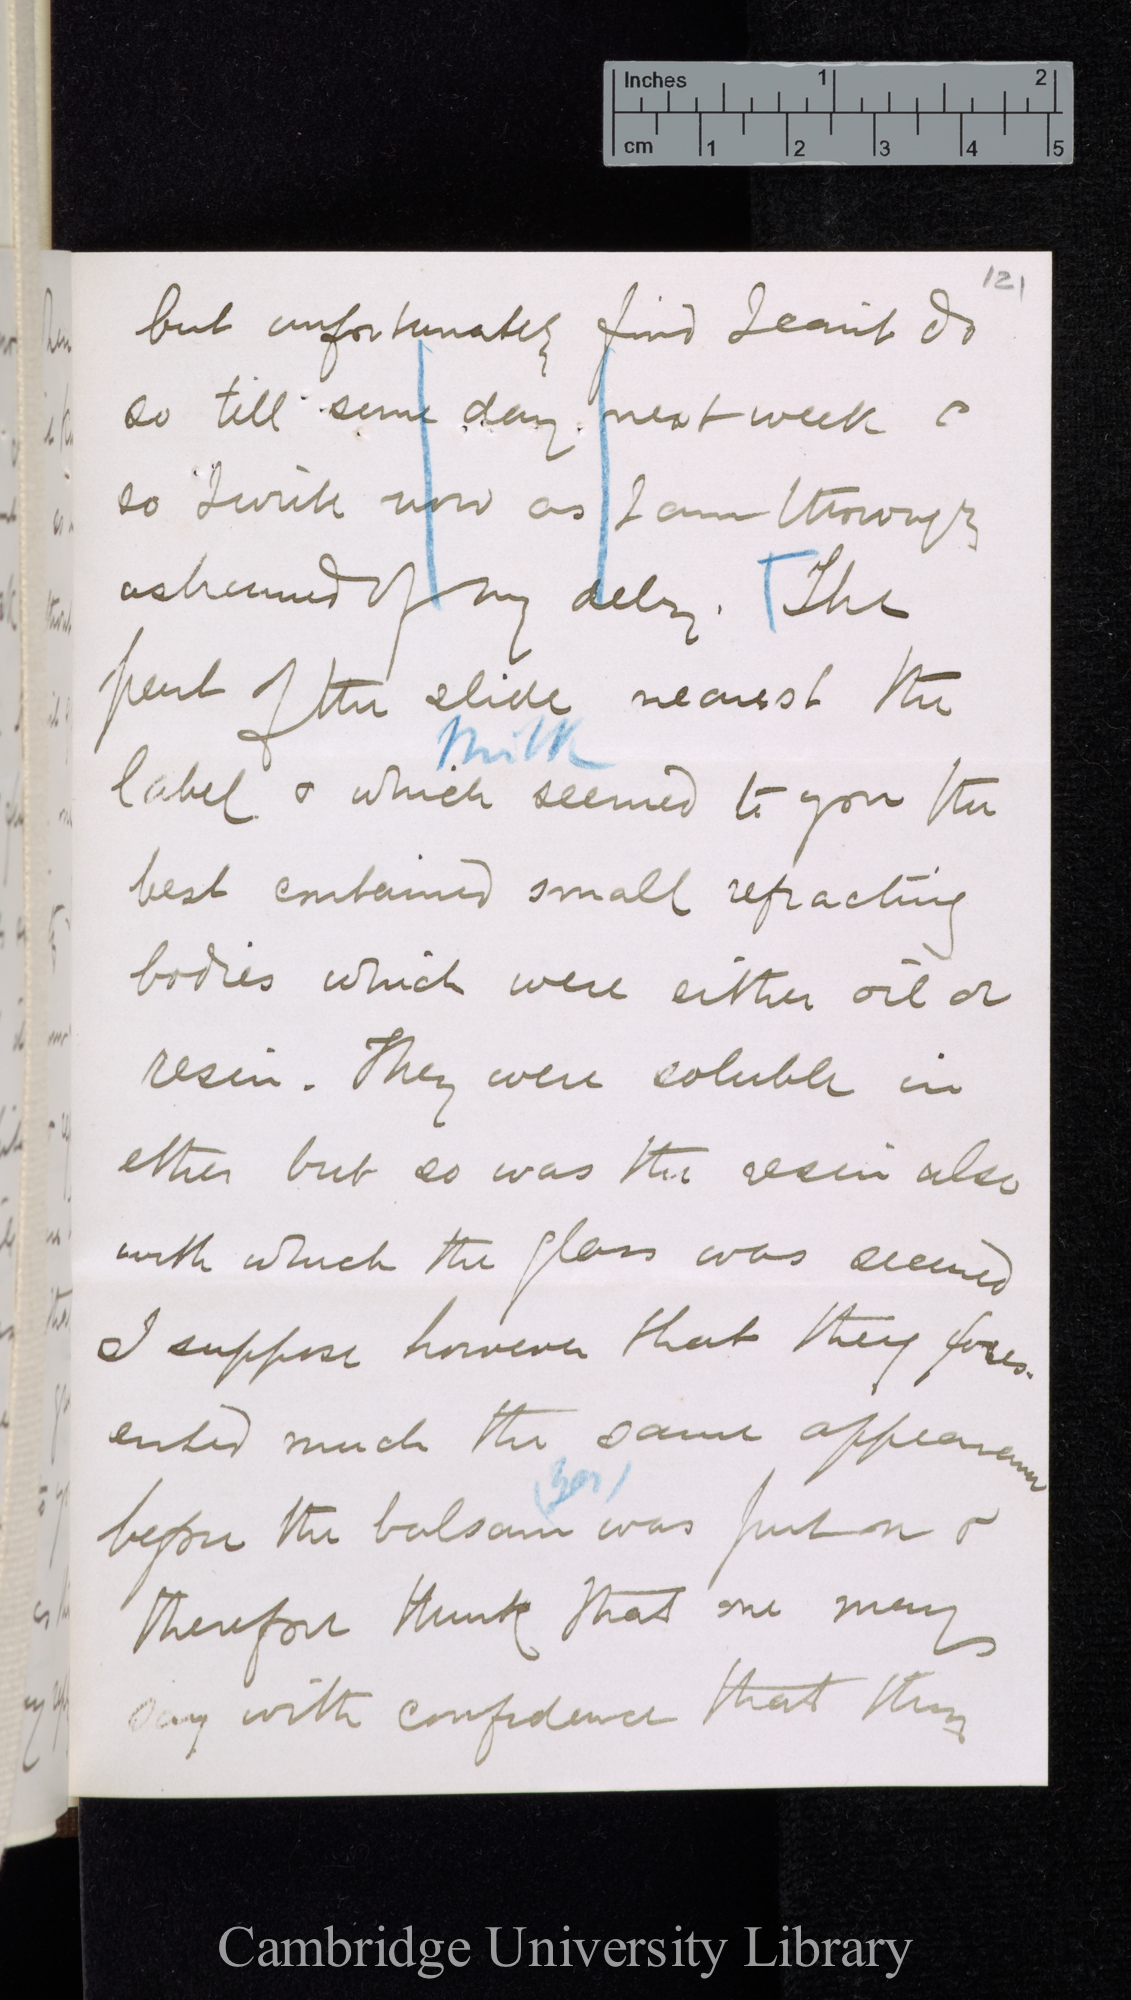 Inches 1 2
cm 1 2 3 4 5
121
but unfortunately find I can't do
so till some day next week &
so I write now as I am thoroughly
ashamed of my delay. [The
part of the slide nearest the
Milk
label & which seemed to you the
best contained small refracting
bodies which were either oil or
resin. They were soluble in
ether but so was the resin also
with which the glass was
I suppose however that they pres-
ented much the same appearance
(yes)
before the balsam was put on &
therefore think that one may
say with confidence that they
Cambridge University Library